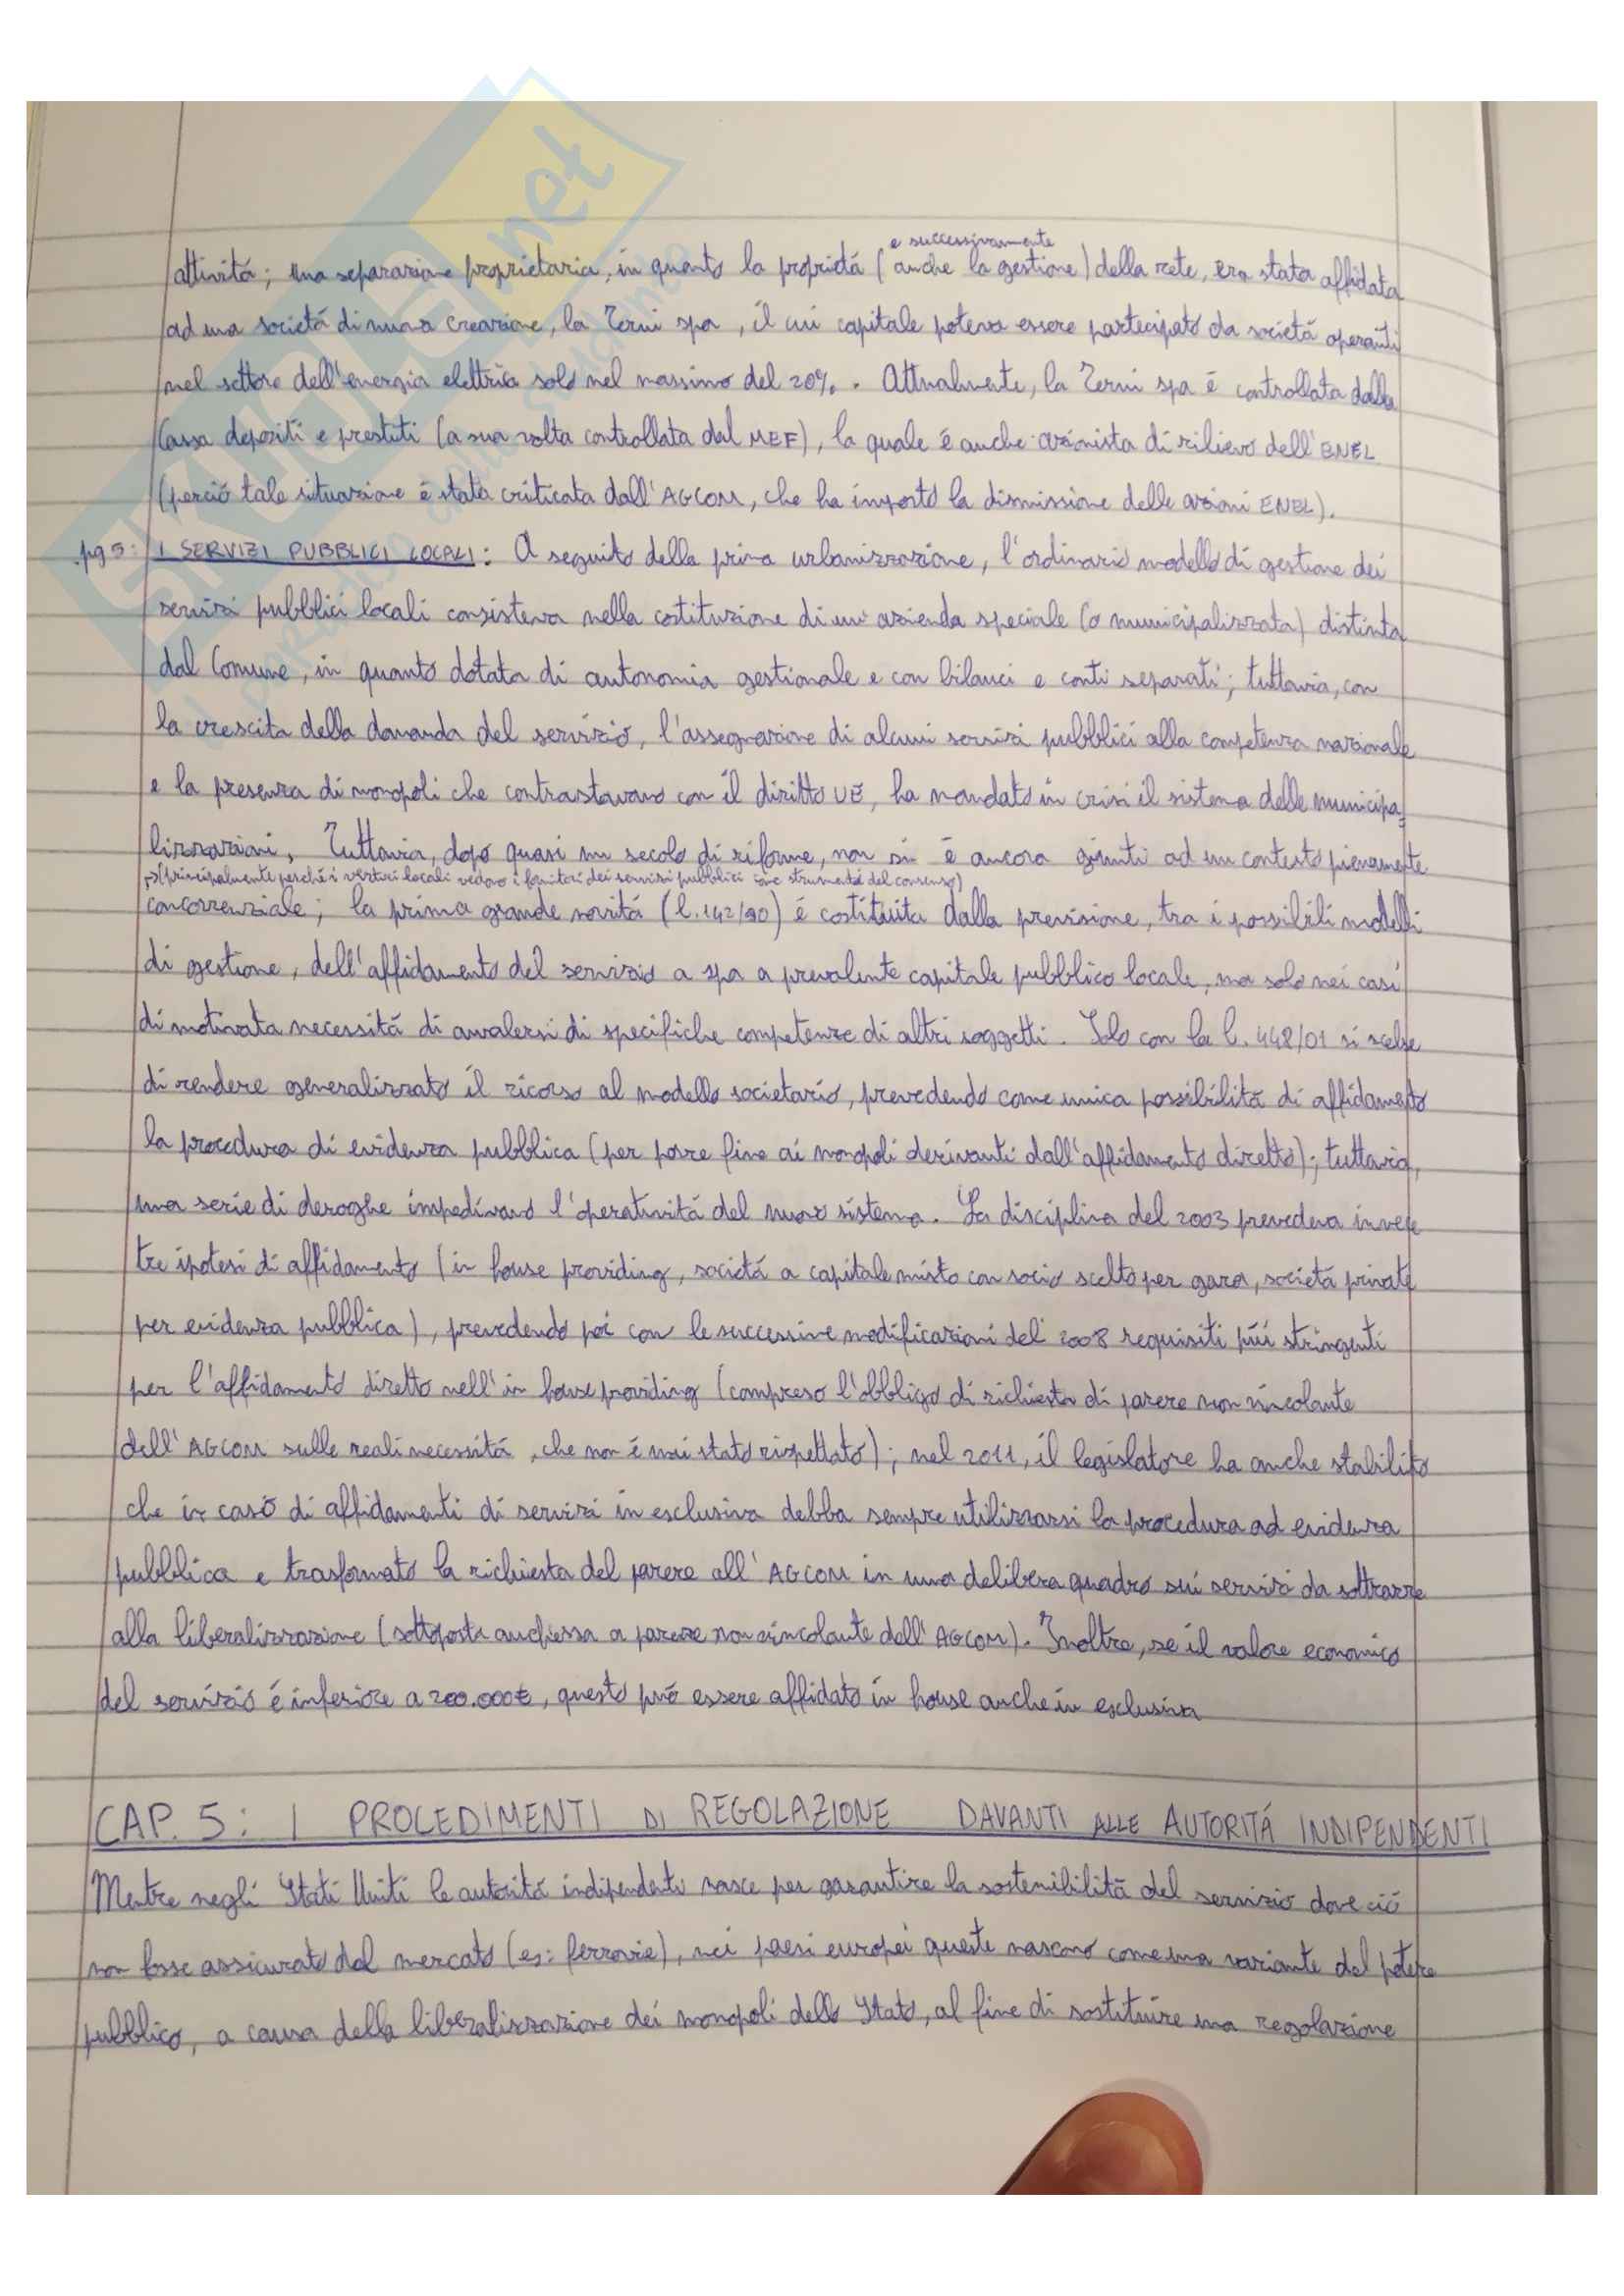 e successivamente
attività; una separazione proprietaria, in quanto la proprietá (anche la gestione) della rete, era stata affidata
ad una societá di nuova creazione, la Terni spa, il cui capitale poteva essere partecipato da societá operanti
nel settore dell'energia elettrica solo nel massimo del 20%. Attualmente, la Terni spa é controllata dalla
Cassa depositi e prestiti (a sua volta controllata dal MEF), la quale é anche azionista di rilievo dell'ENEL
(perció tale situazione é stata criticata dall'AGCOM, che ha imposto la dismissione delle azioni ENEL).
pg 5: I SERVIZI PUBBLICI LOCALI: A seguito della prima urbanizzazione, l'ordinario modello di gestione dei
servizi pubblici locali consisteva nella costituzione di un'azienda speciale (o municipalizzata) distinta
dal Comune, in quanto dotata di autonomia gestionale e con bilanci e conti separati; tuttavia, con
la crescita della domanda del servizio, l'assegnazione di alcuni servizi pubblici alla competenza nazionale
e la presenza di monopoli che contrastavano con il diritto UE, ha mandato in crisi il sistema delle municipa-
lizzazioni. Tuttavia, dopo quasi un secolo di riforme, non si é ancora giunti ad un contesto pienamente
(principalmente perché i vertici locali vedono i fornitori dei servizi pubblici come strumento del consenso)
concorrenziale; la prima grande novitá (l. 142/90) é costituita dalla previsione, tra i possibili modelli
di gestione, dell'affidamento del servizio a spa a prevalente capitale pubblico locale, ma solo nei casi
di motivata necessitá di avvalersi di specifiche competenze di altri soggetti. Solo con la l. 448/01 si scelse
di rendere generalizzato il ricorso al modello societario, prevedendo come unica possibilitá di affidamento
la procedura di evidenza pubblica (per porre fine ai monopoli derivanti dall'affidamento diretto); tuttavia,
una serie di deroghe impedivano l'operativitá del nuovo sistema. La disciplina del 2003 prevedeva invece
tre ipotesi di affidamento (in house providing, societá a capitale misto con socio scelto per gara, societá private
per evidenza pubblica), prevedendo poi con le successive modificazioni del 2008 requisiti piú stringenti
per l'affidamento diretto nell'in house providing (compreso l'obbligo di richiesta di parere non vincolante
dell'AGCOM sulle reali necessitá, che non é mai stato rispettato); nel 2011, il legislatore ha anche stabilito
che in caso di affidamenti di servizi in esclusiva debba sempre utilizzarsi la procedura ad evidenza
pubblica e trasformato la richiesta del parere all'AGCOM in una delibera quadro sui servizi da sottrarre
alla liberalizzazione (sottoposta anch'essa a parere non vincolante dell'AGCOM). Inoltre, se il valore economico
del servizio é inferiore a 200.000€, questo può essere affidato in house anche in esclusiva
CAP. 5: I PROCEDIMENTI DI REGOLAZIONE DAVANTI ALLE AUTORITÁ INDIPENDENTI
Mentre negli Stati Uniti le autoritá indipendenti nasce per garantire la sostenibilitá del servizio dove ció
non fosse assicurato dal mercato (es: ferrovie), nei paesi europei queste nascono come una variante del potere
pubblico, a causa della liberalizzazione dei monopoli dello Stato, al fine di sostituire una regolazione